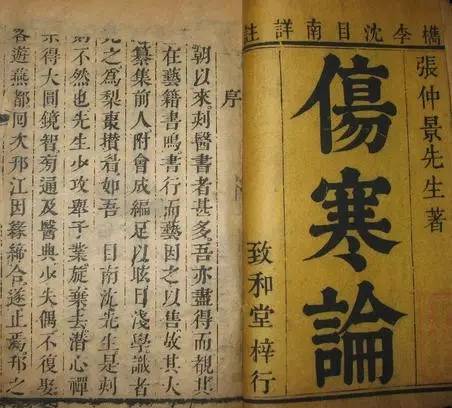 檇李沈目南詳註
張仲景先生著
傷寒論
致和堂梓行
序
朝以來刻醫書者甚多吾亦盡得而觀其
在藝籍書鳴書行而藝因之以售故其大
纂集前人附會成編足以眩目淺學識者
見之為梨棗攅着如吾 目南沈先生是刻
則不然也先生少攻舉子業旋棄去潛心禪
宗得大圓鏡智旁通及醫典少失偶不復娶
各遊燕都同次邗江因緣締合遂止焉邗之